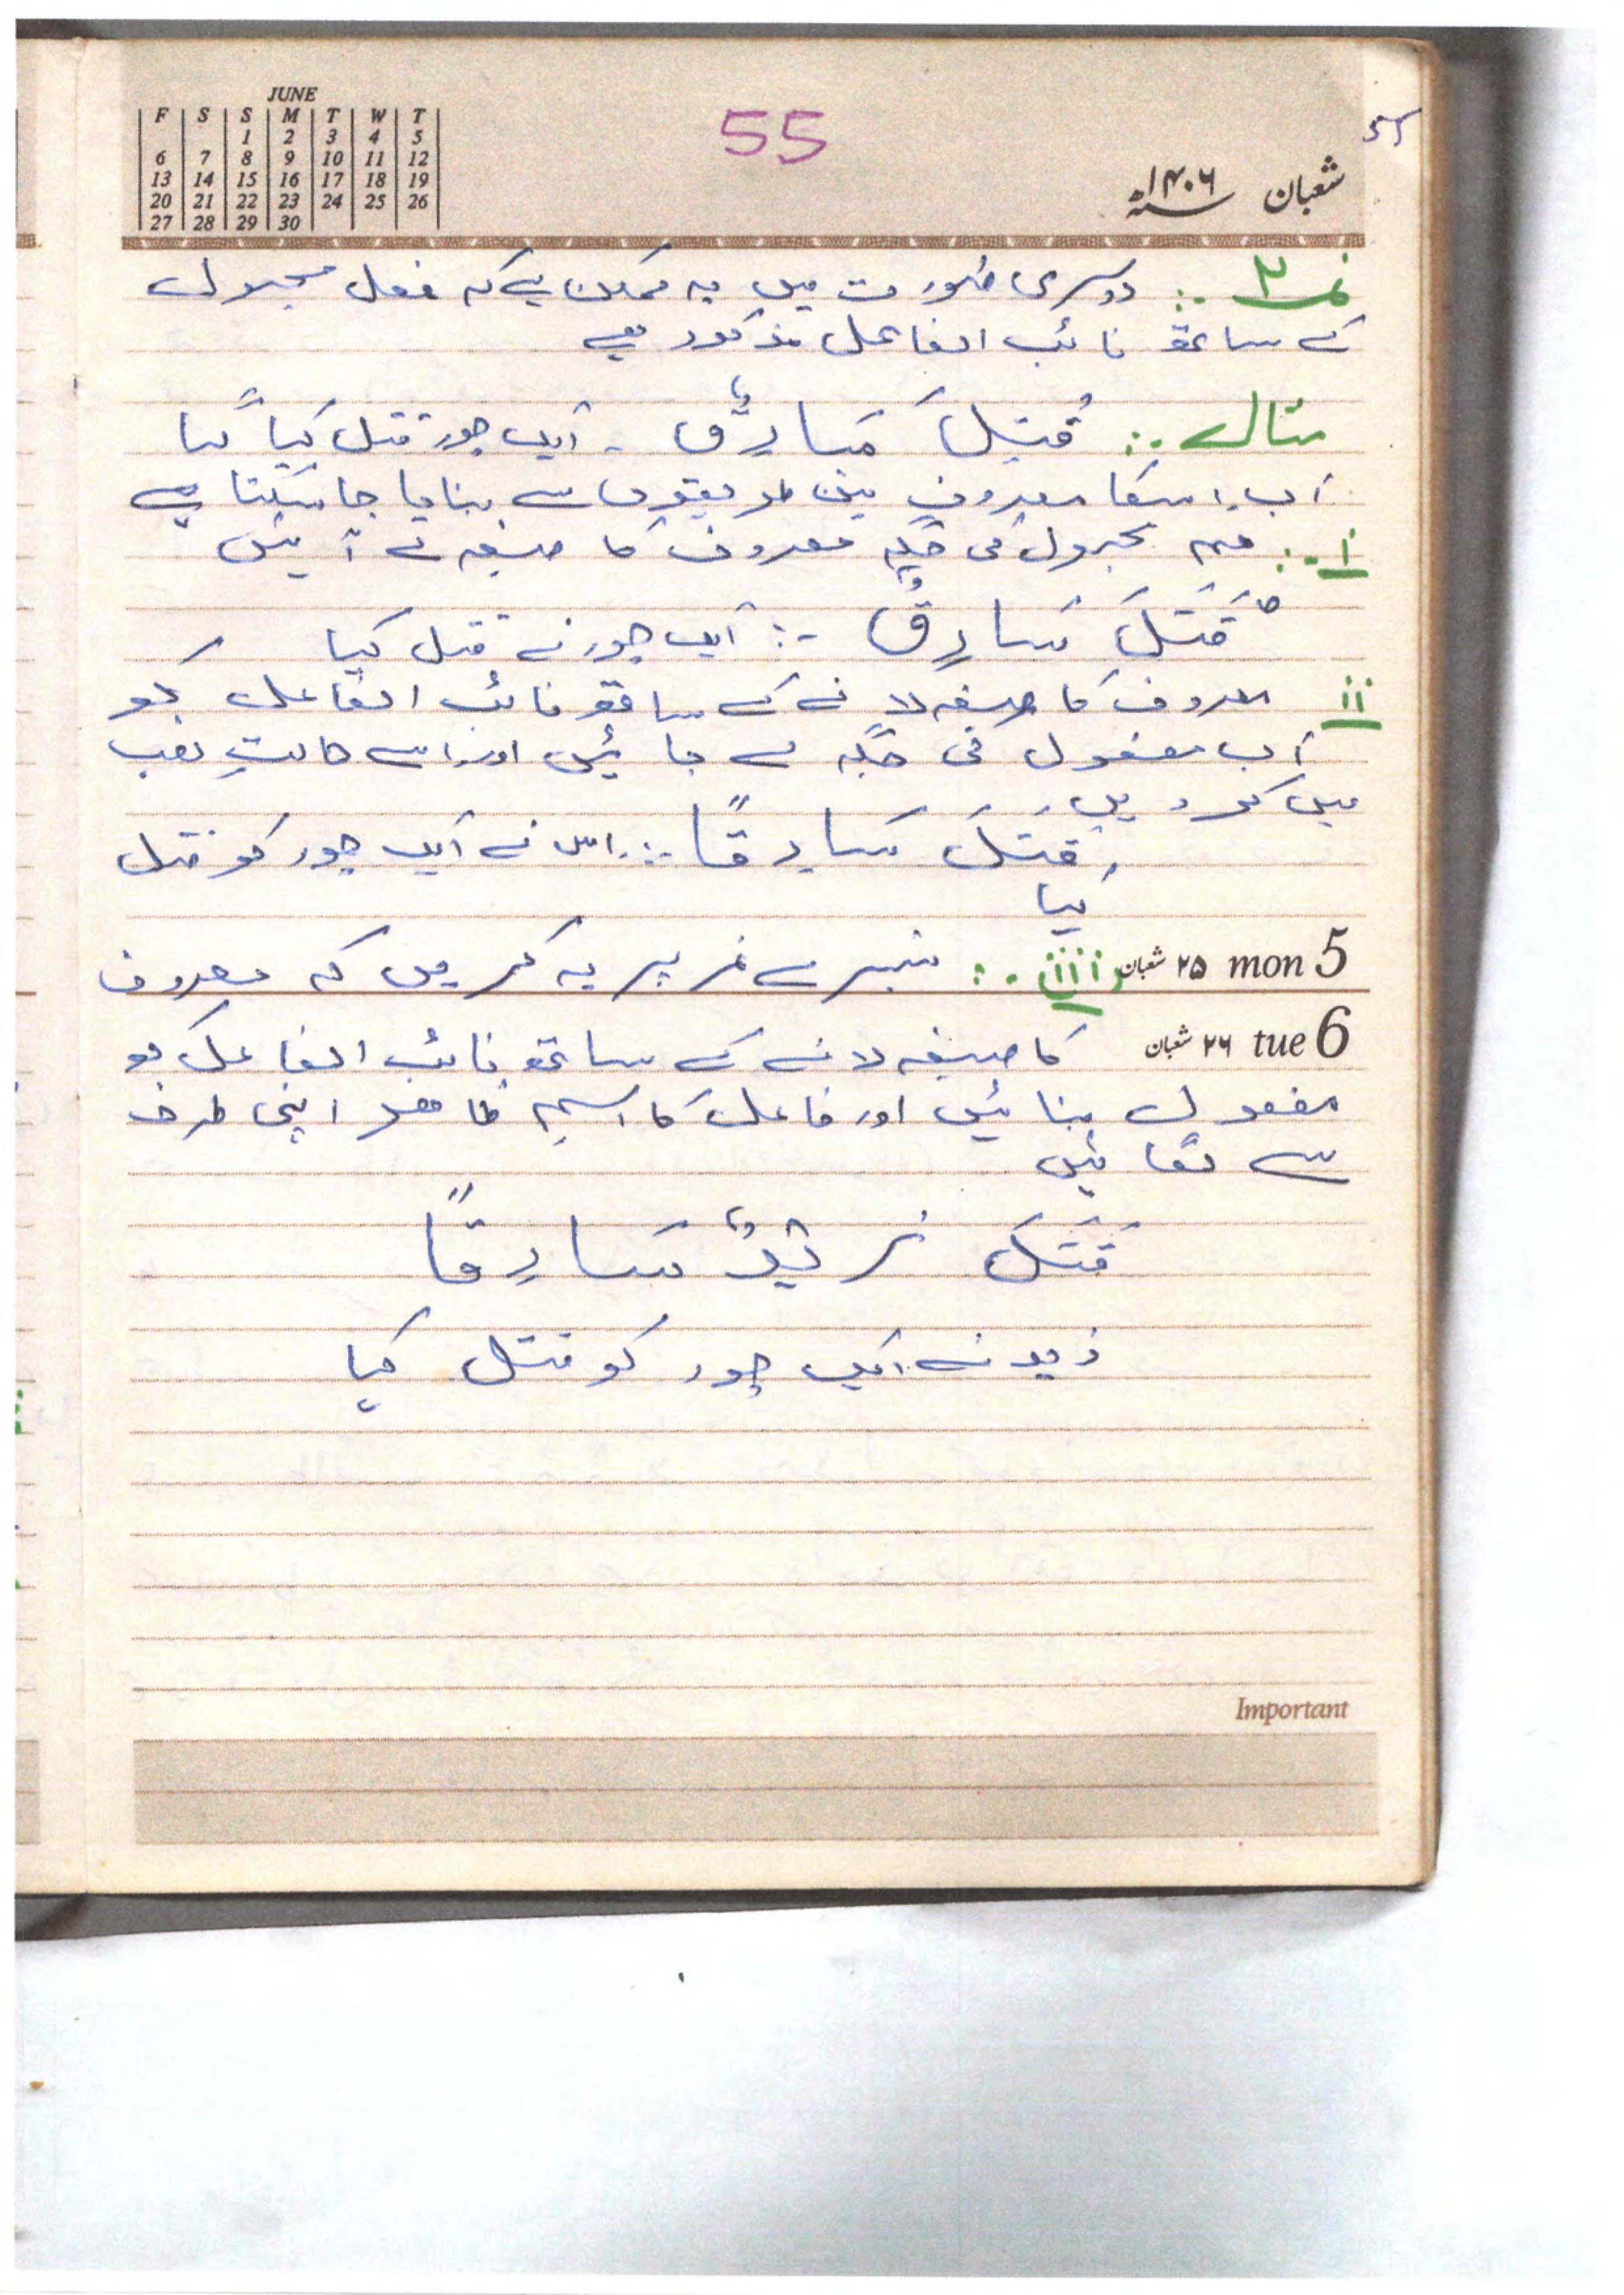 JUNE
F S S M T W T
1 2 3 4 5
6 7 8 9 10 11 12
13 14 15 16 17 18 19
20 21 22 23 24 25 26
27 28 29 30
55
شعبان ۱۴۰۶ھ
نمبر ۲ :۔ دوسری صورت میں یہ ممکن ہے کہ فعل مجہول
کے ساتھ نائب الفاعل مذکور ہے
مثال :۔ قُتِلَ سَارِقٌ ۔ ایک چور قتل کیا گیا
اب اسکا معروف تین طریقوں سے بنایا جا سکتا ہے
i :۔ ہم مجہول کی جگہ معروف کا صیغہ لے آئیں
قَتَلَ سَارِقٌ :۔ ایک چور نے قتل کیا
ii معروف کا صیغہ لانے کے ساتھ نائب الفاعل کو
اب مفعول کی جگہ لے جائیں اور اسے حالتِ نصب
میں کر دیں
قَتَلَ سَارِقًا :۔ اس نے ایک چور کو قتل
کیا
mon 5 ۲۵ شعبان iii :۔ تیسرے نمبر پر یہ کریں کہ معروف
tue 6 ۲۶ شعبان کا صیغہ لانے کے ساتھ نائب الفاعل کو
مفعول بنائیں اور فاعل کا اسم ظاہر اپنی طرف
سے لگائیں
قَتَلَ زَيْدٌ سَارِقًا
زید نے ایک چور کو قتل کیا
Important